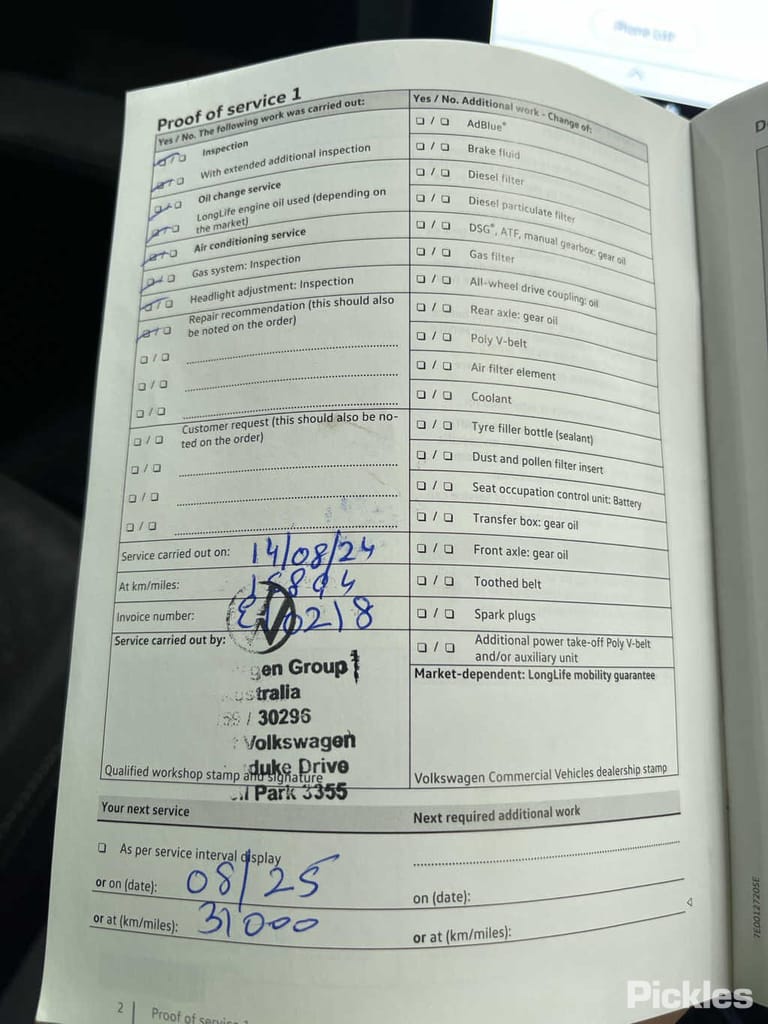 Proof of service 1
Yes / No. The following work was carried out:
Inspection
With extended additional inspection
Oil change service
LongLife engine oil used (depending on
the market)
Air conditioning service
Gas system: Inspection
Headlight adjustment: Inspection
Repair recommendation (this should also
be noted on the order)
Customer request (this should also be no-
ted on the order)
Service carried out on: 14/08/24
At km/miles:
Invoice number:
Service carried out by:
gen Group
stralia
/ 30296
Volkswagen
duke Drive
Park 3355
Qualified workshop stamp and signature
Yes / No. Additional work - Change of:
AdBlue®
Brake fluid
Diesel filter
Diesel particulate filter
DSG®, ATF, manual gearbox: gear oil
Gas filter
All-wheel drive coupling: oil
Rear axle: gear oil
Poly V-belt
Air filter element
Coolant
Tyre filler bottle (sealant)
Dust and pollen filter insert
Seat occupation control unit: Battery
Transfer box: gear oil
Front axle: gear oil
Toothed belt
Spark plugs
Additional power take-off Poly V-belt
and/or auxiliary unit
Market-dependent: LongLife mobility guarantee
Volkswagen Commercial Vehicles dealership stamp
Your next service
As per service interval display
or on (date): 08/25
or at (km/miles): 31000
Next required additional work
on (date):
or at (km/miles):
2 | Proof of service 1
7E0012720SE
Pickles